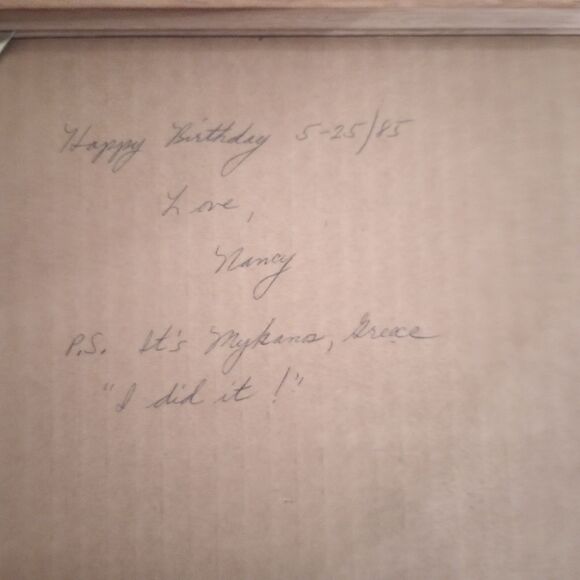 Happy Birthday 5-25/85
Love,
Nancy
P.S. It's Mykanos, Greece
"I did it!"